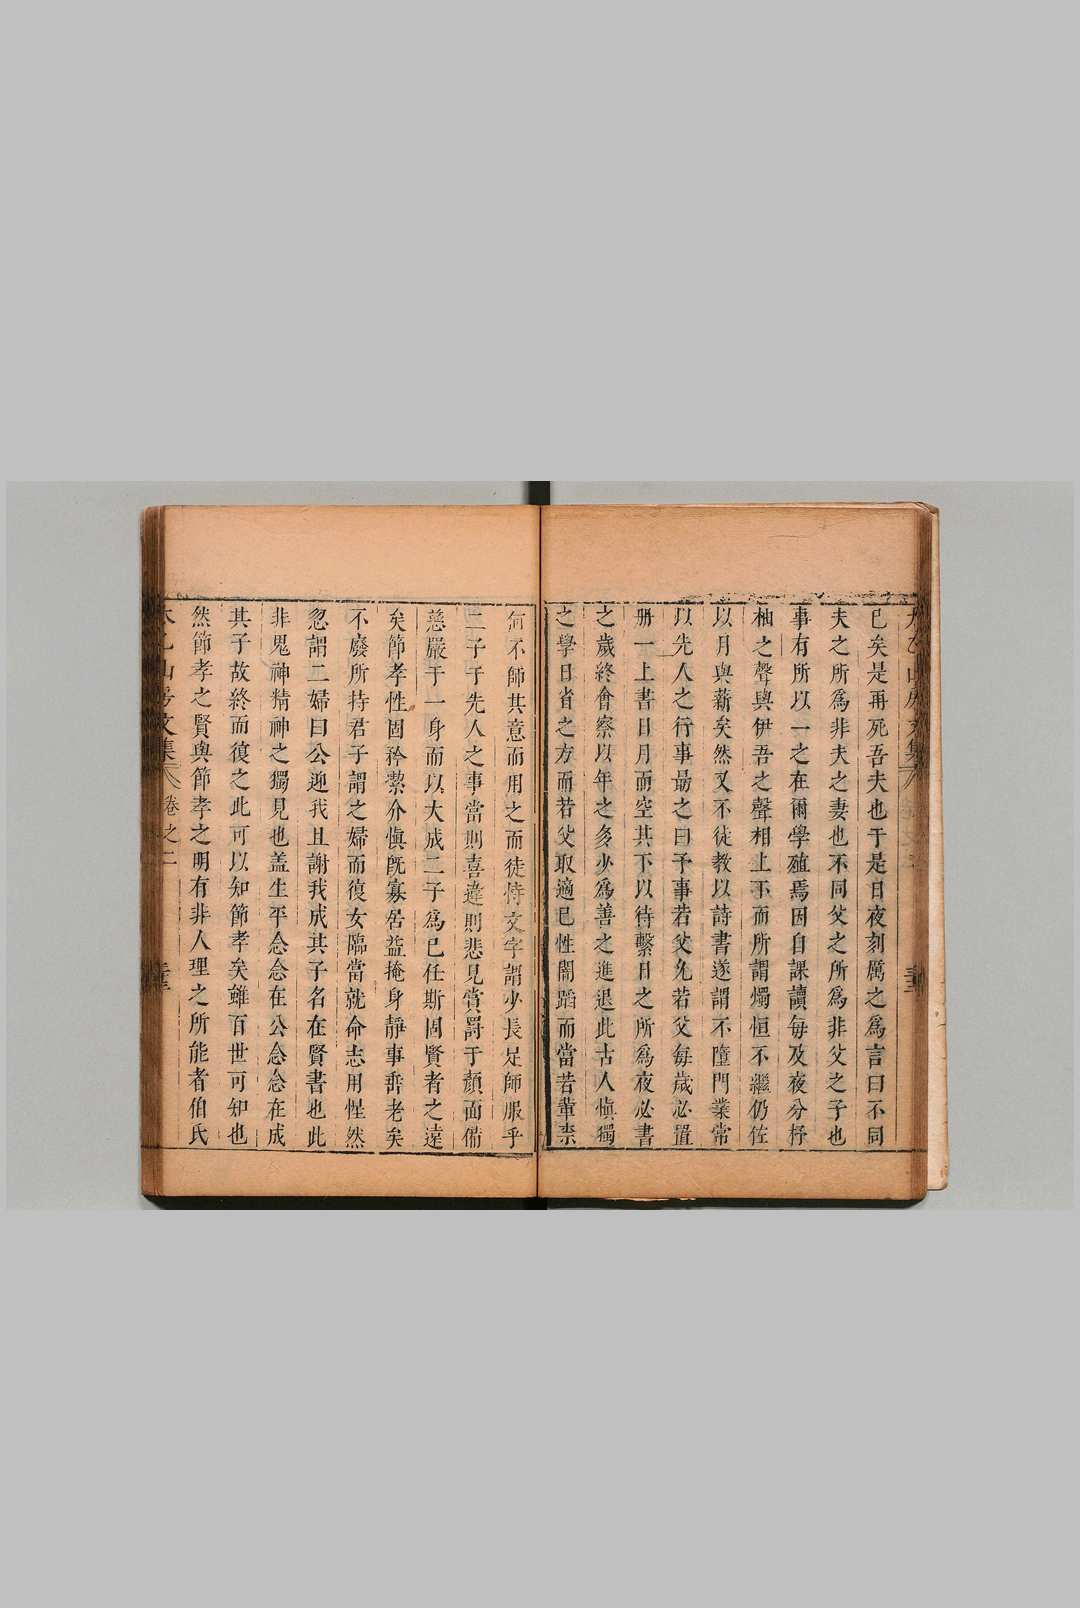 已矣是再死吾夫也于是日夜刻厲之為言曰不同
夫之所為非夫之妻也不同父之所為非父之子也
事有所以一之在爾學殖焉因自課讀每及夜分杼
柚之聲與伊吾之聲相上下而所謂燭恒不繼仍佐
以月與薪矣然又不徒教以詩書遂謂不墮門業常
以先人之行事勗之曰予事若父允若父每歲必置
册一上書日月而空其下以待繫日之所為夜必書
之歲終會察以年之多少為善之進退此古人慎獨
之學日省之方而若父取適巳性闇蹈而當若輩柰
何不師其意而用之而徒恃文字謂少長足師服乎
二子于先人之事當則喜違則悲見賞罰于顏面備
慈嚴于一身而以大成二子為已任斯固賢者之遠
矣節孝性固矜絜介慎旣寡居益掩身靜事耆老矣
不廢所持君子謂之婦而復女臨當就命志用惺然
忽謂二婦曰公迎我且謝我成其子名在賢書也此
非鬼神精神之獨見也盖生平念念在公念念在成
其子故終而復之此可以知節孝矣雖百世可知也
然節孝之賢與節孝之明有非人理之所能者伯氏
太乙山房文集
卷之二